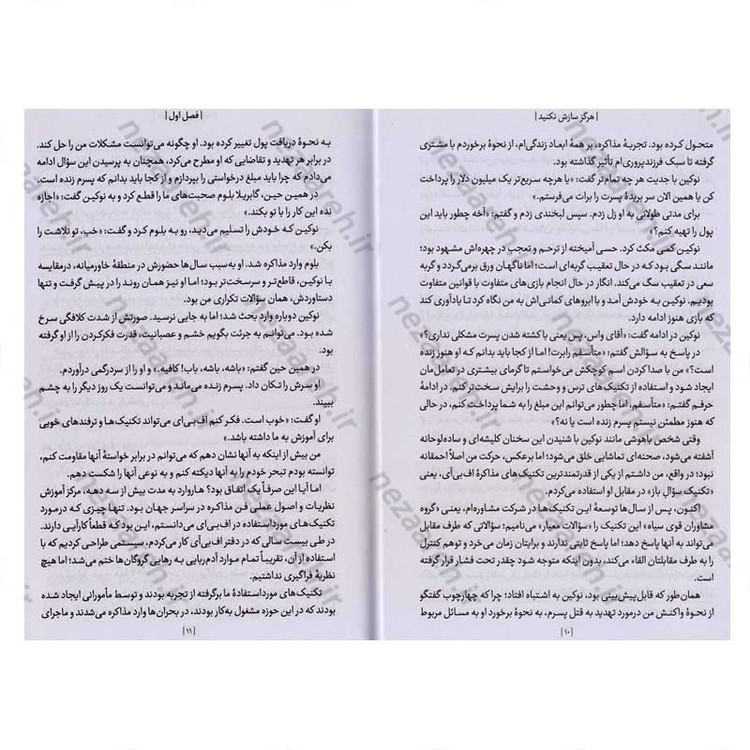 | هرگز سازش نکنید |
متحول کرده بود. تجربهٔ مذاکره، بر همهٔ ابعاد زندگی‌ام، از نحوهٔ برخوردم با مشتری
گرفته تا سبک فرزندپروری‌ام تأثیر گذاشته بود.
نوکین با جدیت هر چه تمام‌تر گفت: «یا هرچه سریع‌تر یک میلیون دلار را پرداخت
کن یا همین الان سر بریدهٔ پسرت را برات می‌فرستم.»
برای مدتی طولانی به او زل زدم. سپس لبخندی زدم و گفتم: «آخه چطور باید این
پول را تهیه کنم؟»
نوکین کمی مکث کرد. حسی آمیخته از ترحم و تعجب در چهره‌اش مشهود بود؛
مانند سگی بود که در حال تعقیب گربه‌ای است؛ اما ناگهان ورق برمی‌گردد و گربه
سعی در تعقیب سگ می‌کند. انگار در حال انجام بازی‌های متفاوت با قوانین متفاوت
بودیم. نوکین به خودش آمد و با ابروهای کمانی‌اش به من نگاه کرد تا یادآوری کند
که بازی هنوز ادامه دارد.
نوکین در ادامه گفت: «آقای واس، پس یعنی با کشته شدن پسرت مشکلی نداری؟»
در پاسخ به سؤالش گفتم: «متأسفم رابرت! اما از کجا باید بدانم که او هنوز زنده
است؟» من با صدا کردن اسم کوچکش می‌خواستم تا گرمای بیشتری در تعامل‌مان
ایجاد شود و استفاده از تکنیک‌های ترس و وحشت را برایش سخت‌تر کنم. در ادامهٔ
حرفم گفتم: «متأسفم، اما چطور می‌توانم این مبلغ را به شما پرداخت کنم، در حالی
که هنوز مطمئن نیستم پسرم زنده است یا نه؟»
وقتی شخص باهوشی مانند نوکین با شنیدن این سخنان کلیشه‌ای و ساده‌لوحانه
آشفته می‌شود، صحنه‌ای تماشایی خلق می‌شود؛ اما برعکس، حرکت من اصلاً احمقانه
نبود؛ در واقع، من داشتم از یکی از قدرتمندترین تکنیک‌های مذاکرهٔ اف‌بی‌آی، یعنی
«تکنیک سؤال باز» در مقابل او استفاده می‌کردم.
اکنون، پس از سال‌ها توسعهٔ این تکنیک‌ها در شرکت مشاوره‌ام، یعنی «گروه
مشاوران قوی سیاه» این تکنیک را «سؤالات معیار» می‌نامیم؛ سؤالاتی که طرف مقابل
می‌تواند به آنها پاسخ دهد؛ اما پاسخ ثابتی ندارند و برایتان زمان می‌خرد و توهم کنترل
را به طرف مقابلتان القاء می‌کند، بدون اینکه متوجه شود چقدر تحت فشار قرار گرفته
است.
همان‌طور که قابل‌پیش‌بینی بود، نوکین به اشتباه افتاد؛ چرا که چهارچوب گفتگو
از نحوهٔ واکنش من درمورد تهدید به قتل پسرم، به نحوهٔ برخورد او به مسائل مربوط
| ۱۰ |
| فصل اول |
به نحوهٔ دریافت پول تغییر کرده بود. او چگونه می‌توانست مشکلات من را حل کند.
در برابر هر تهدید و تقاضایی که او مطرح می‌کرد، همچنان به پرسیدن این سؤال ادامه
می‌دادم که چرا باید مبلغ درخواستی را بپردازم و از کجا باید بدانم که پسرم زنده است.
در همین حین، گابریلا بلوم صحبت‌های ما را قطع کرد و به نوکین گفت: «اجازه
نده این کار را با تو بکند.»
نوکین که خودش را تسلیم می‌دید، رو به بلوم کرد و گفت: «خب، تو تلاشت را
بکن.»
بلوم وارد مذاکره شد. او به‌سبب سال‌ها حضورش در منطقهٔ خاورمیانه، درمقایسه
با نوکین، قاطع‌تر و سرسخت‌تر بود؛ اما او نیز همان روند را در پیش گرفت و تنها
دستاوردش، همان سؤالات تکراری من بود.
نوکین دوباره وارد بحث شد؛ اما به جایی نرسید. صورتش از شدت کلافگی سرخ
شده بود. می‌توانم به جرئت بگویم خشم و عصبانیت، قدرت فکرکردن را از او گرفته
بود.
در همین حین گفتم: «باشه، باشه، باب! کافیه.» و او را از سردرگمی درآوردم.
او سرش را تکان داد. پسرم زنده می‌ماند و می‌توانست یک روز دیگر را به چشم
ببیند.
او گفت: «خوب است. فکر کنم اف‌بی‌آی می‌تواند تکنیک‌ها و ترفندهای خوبی
برای آموزش به ما داشته باشد.»
من بیش از اینکه به آنها نشان دهم که می‌توانم در برابر خواستهٔ آنها مقاومت کنم،
توانسته بودم تبحر خودم را به آنها دیکته کنم و به نوعی آنها را شکست دهم.
اما آیا این صرفاً یک اتفاق بود؟ هاروارد به مدت بیش از سه دهه، مرکز آموزش
نظریات و اصول عملی فن مذاکره در سراسر جهان بود. تنها چیزی که درمورد
تکنیک‌های مورداستفاده در اف‌بی‌آی می‌دانستم، این بود که قطعاً کارآیی دارند.
در طی بیست سالی که در دفتر اف‌بی‌آی کار می‌کردم، سیستمی طراحی کردیم که با
استفاده از آن، تقریباً تمام موارد آدم‌ربایی به رهایی گروگان‌ها ختم می‌شد؛ اما هیچ
نظریهٔ فراگیری نداشتیم.
تکنیک‌های مورداستفادهٔ ما برگرفته از تجربه بودند و توسط مأمورانی ایجاد شده
بودند که در این حوزه مشغول به‌کار بودند، در بحران‌ها وارد مذاکره می‌شدند و ماجرای
| ۱۱ |
nezaareh.ir